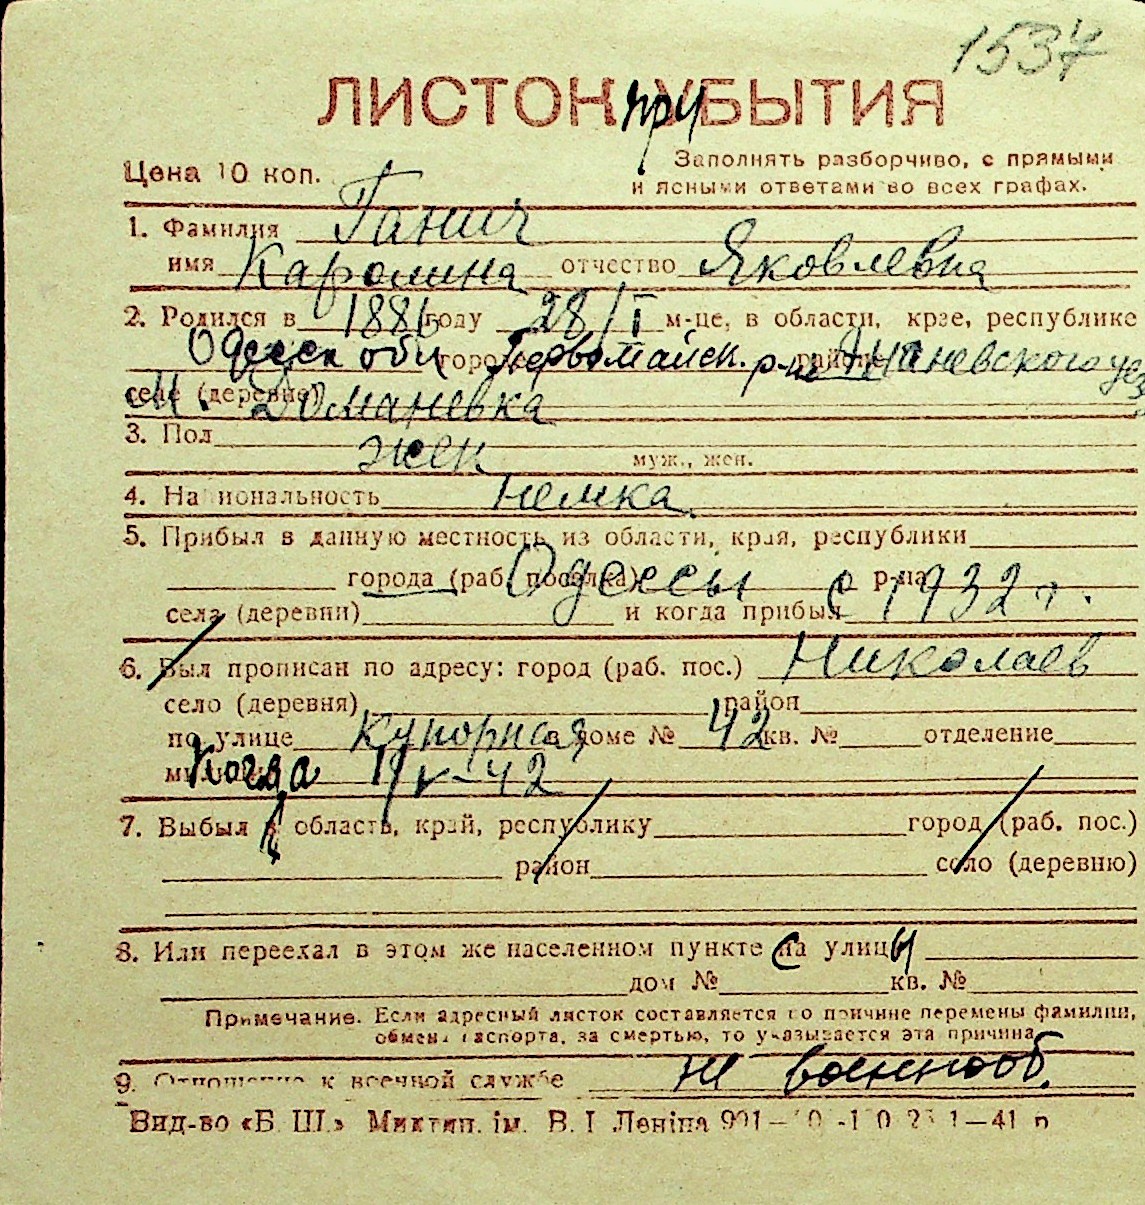 1537
ЛИСТОК при УБЫТИЯ
Цена 10 коп.
Заполнять разборчиво, с прямыми
и ясными ответами во всех графах.
1. Фамилия Ганич
имя Каролина отчество Яковлевна
2. Родился в 1886 году 28/I м-це, в области, крае, республике
Одесск обл город Первомайск. р-на район Ананьевского уез
селе (деревне) м. Доманевка
3. Пол жен муж., жен.
4. Национальность немка.
5. Прибыл в данную местность из области, края, республики
города (раб. поселка) Одессы р-на
села (деревни) и когда прибыл с 1932 г.
6. Был прописан по адресу: город (раб. пос.) Николаев
село (деревня) район
по улице Купорная в доме № 42 кв. № отделение
милиции Когда 1/V-42
7. Выбыл в область, край, республику город (раб. пос.)
район село (деревню)
8. Или переехал в этом же населенном пункте с на улицы
дом № кв. №
Примечание. Если адресный листок составляется по причине перемены фамилии,
обмена паспорта, за смертью, то указывается эта причина
9. Отношение к военной службе не военнооб.
Вид-во «Б. Ш.» Миктип. ім. В. І Леніна